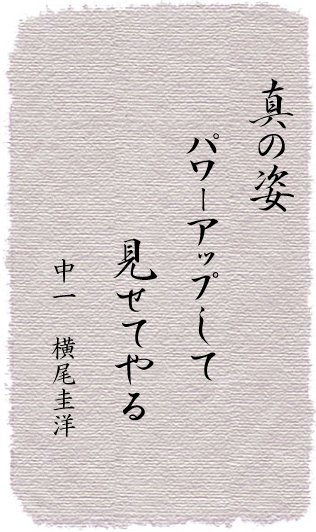 真の姿
パワーアップして
見せてやる
中一　横尾圭洋